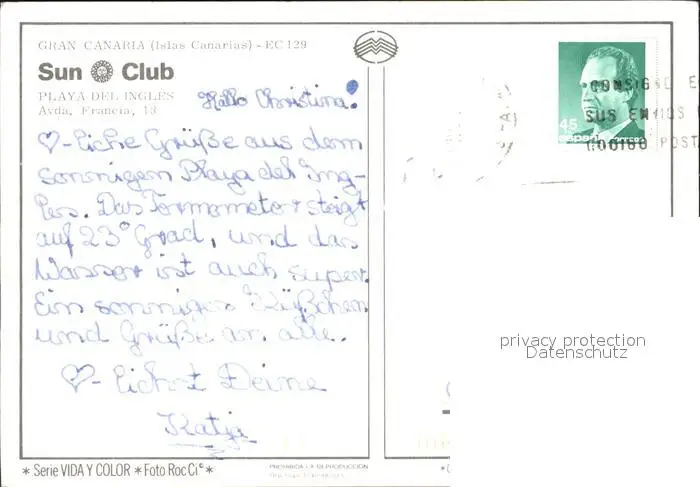 GRAN CANARIA (Islas Canarias) - EC 129
Sun Club
PLAYA DEL INGLES
Avda. Francia, 13
Hallo Christina!
♡-liche Grüße aus dem
sonnigen Playa del Ing-
les. Das Termometer steigt
auf 23° Grad, und das
Wasser ist auch super.
Ein sonniges Küßchen
und Grüße an alle.
♡-lichst Deine
Katja
45
CONSIGNE E
SUS ENVIOS
CODIGO POSTA
privacy protection
Datenschutz
* Serie VIDA Y COLOR * Foto Roc Cíª *
PROHIBIDA LA REPRODUCCION